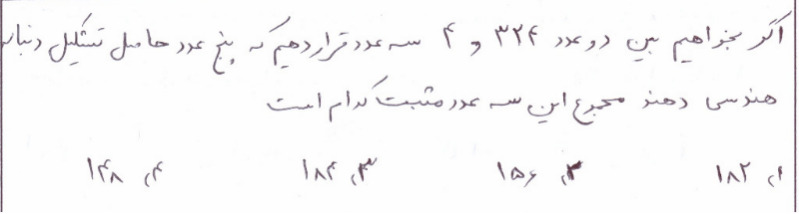 اگر بخواهیم بین دو عدد ۳۲۴ و ۴ سه عدد قرار دهیم که پنج عدد حاصل تشکیل دنباله
هندسی دهند مجموع این سه عدد مثبت کدام است
۱) ۱۸۲ ۲) ۱۵۶ ۳) ۱۸۴ ۴) ۱۴۸